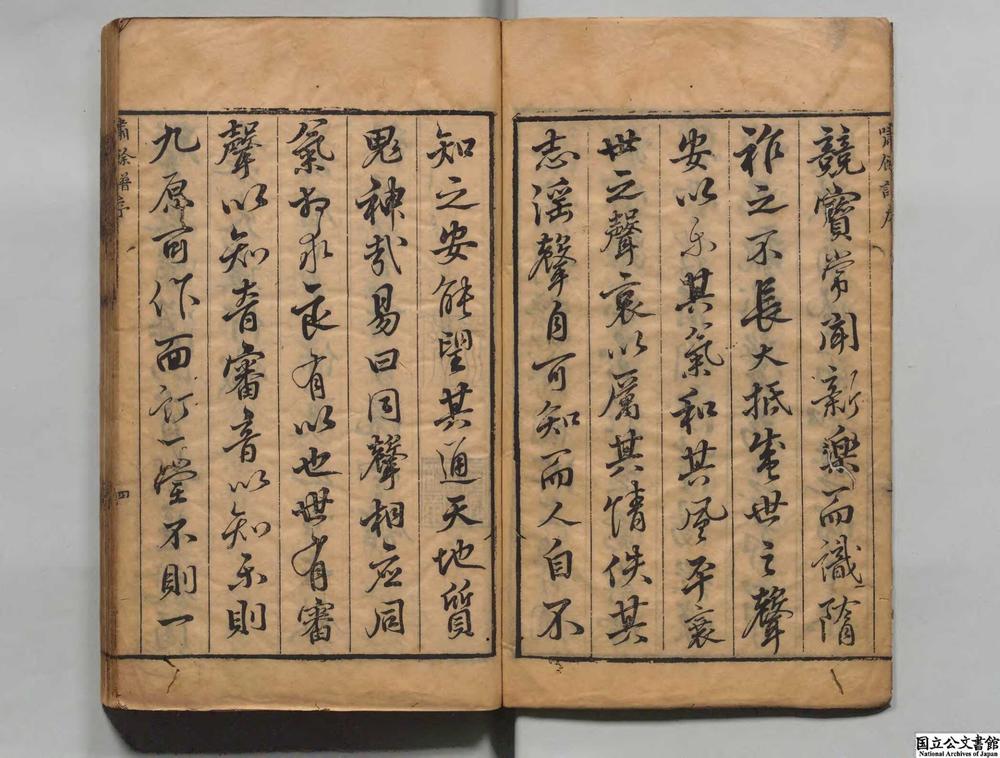 嘯餘譜序
競寶常聞新樂而識隋
祚之不長大抵盛世之聲
安以乐其氣和其風平衰
世之聲哀以厲其情佚其
志淫聲自可知而人自不
知之安能望其通天地質
鬼神哉易曰同聲相应同
氣相求良有以也世有審
聲以知音審音以知乐則
九原可作面訂一堂不則一
嘯餘譜序
四
国立公文書館
National Archives of Japan